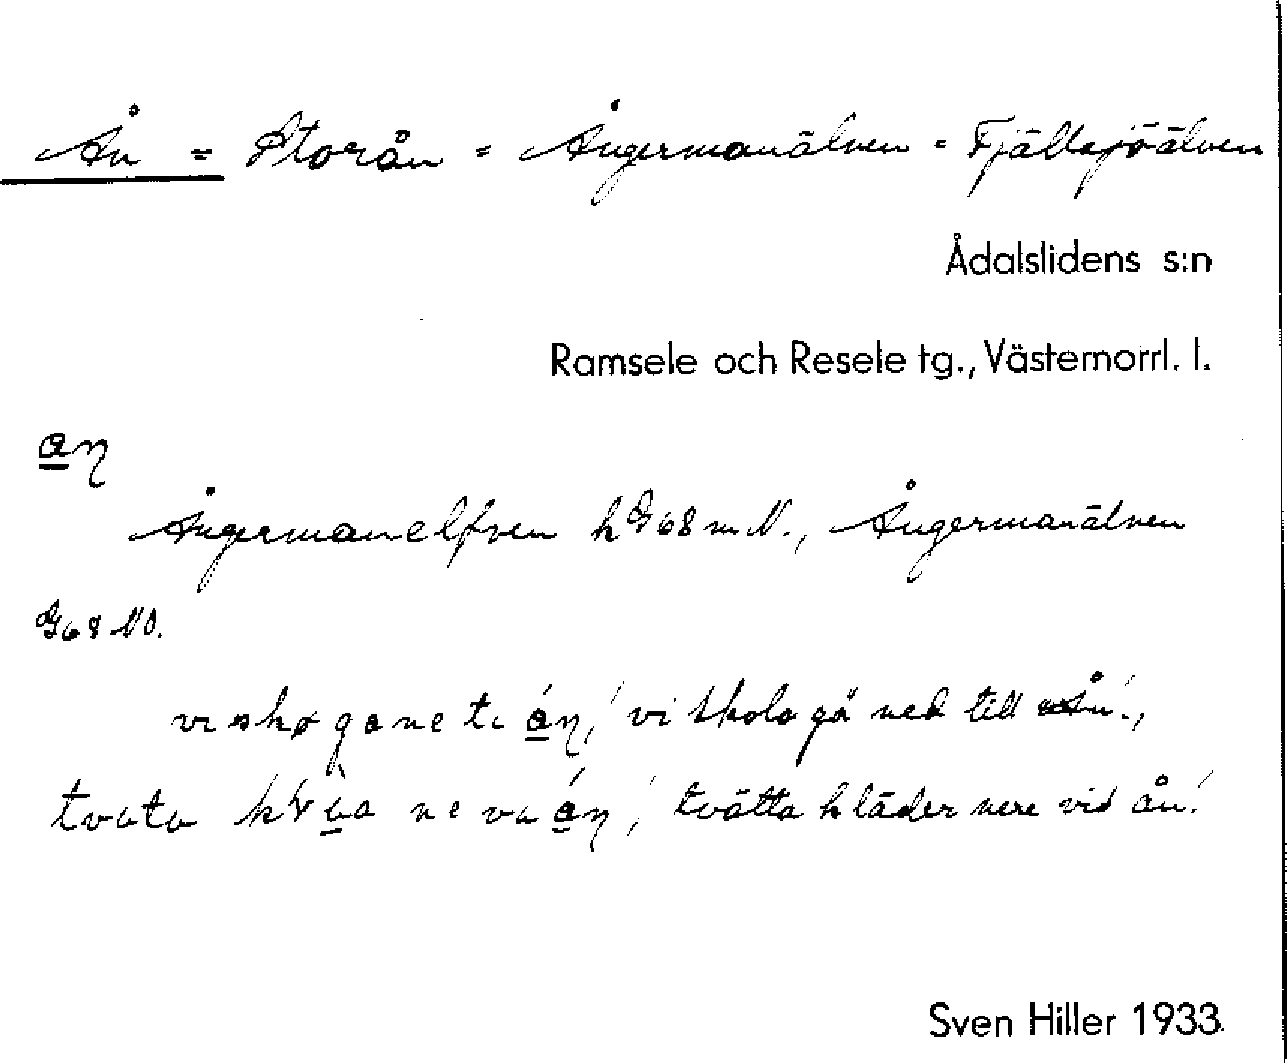 Ån = Storån = Ångermanälven = Fjällsjöälven
Ådalslidens s:n
Ramsele och Resele tg., Västernorrl. l.
Ångermanelfven h G68 m N., Ångermanälven
G68 NO.
'vi skola gå ned till ån',
'tvätta kläder nere vid ån'
Sven Hiller 1933